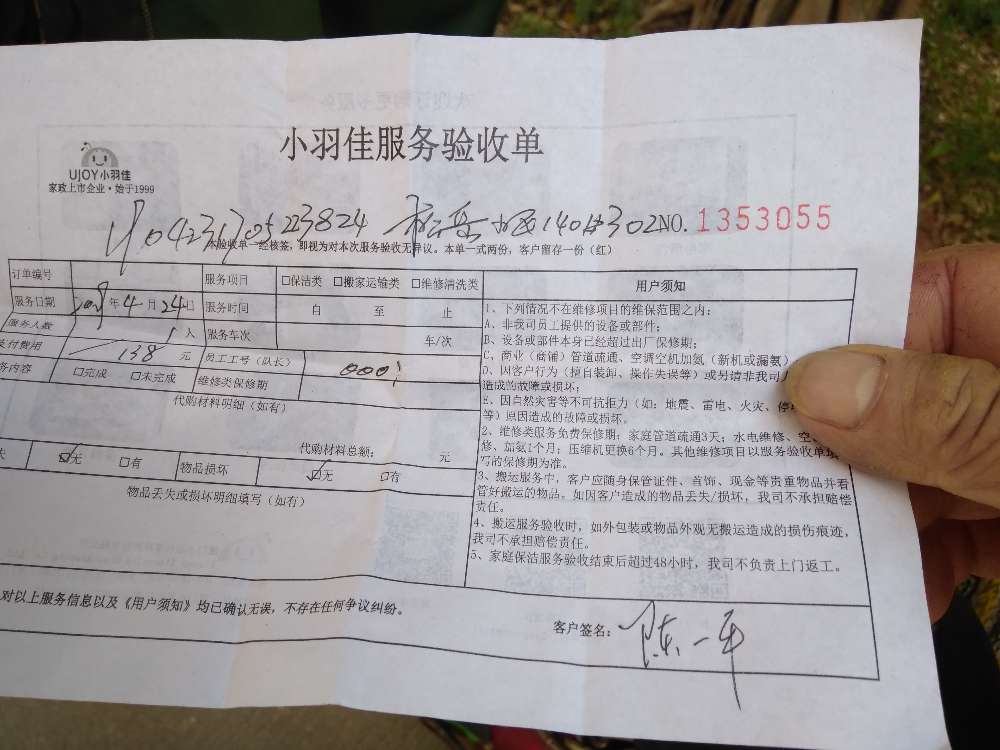 小羽佳服务验收单
UJOY小羽佳
家政上市企业·始于1999
NO. 1353055
本验收单一经核签，即视为对本次服务验收无异议。本单一式两份，客户留存一份（红）
订单编号 服务项目 □保洁类 □搬家运输类 □维修清洗类
服务日期 年4月24日 服务时间 自 至 止
服务人数 1人 服务车次 车/次
付费用 138 元 员工工号（队长）
务内容 □完成 □未完成 维修类保修期
代购材料明细（如有）
代购材料总额： 元
失 ☑无 □有 物品损坏 ☑无 □有
物品丢失或损坏明细填写（如有）
用户须知
1、下列情况不在维修项目的维保范围之内：
A、非我司员工提供的设备或部件；
B、设备或部件本身已经超过出厂保修期；
C、商业（商铺）管道疏通、空调空机加氮（新机或漏氨）
D、因客户行为（擅自装卸、操作失误等）或另请非我司
造成的故障或损坏；
E、因自然灾害等不可抗拒力（如：地震、雷电、火灾、停
等）原因造成的故障或损坏。
2、维修类服务免费保修期：家庭管道疏通3天；水电维修、空
修、加氨1个月；压缩机更换6个月。其他维修项目以服务验收单填
写的保修期为准。
3、搬运服务中，客户应随身保管证件、首饰、现金等贵重物品并看
管好搬运的物品。如因客户造成的物品丢失/损坏，我司不承担赔偿
责任。
4、搬运服务验收时，如外包装或物品外观无搬运造成的损伤痕迹，
我司不承担赔偿责任。
5、家庭保洁服务验收结束后超过48小时，我司不负责上门返工。
对以上服务信息以及《用户须知》均已确认无误，不存在任何争议纠纷。
客户签名：陈一平